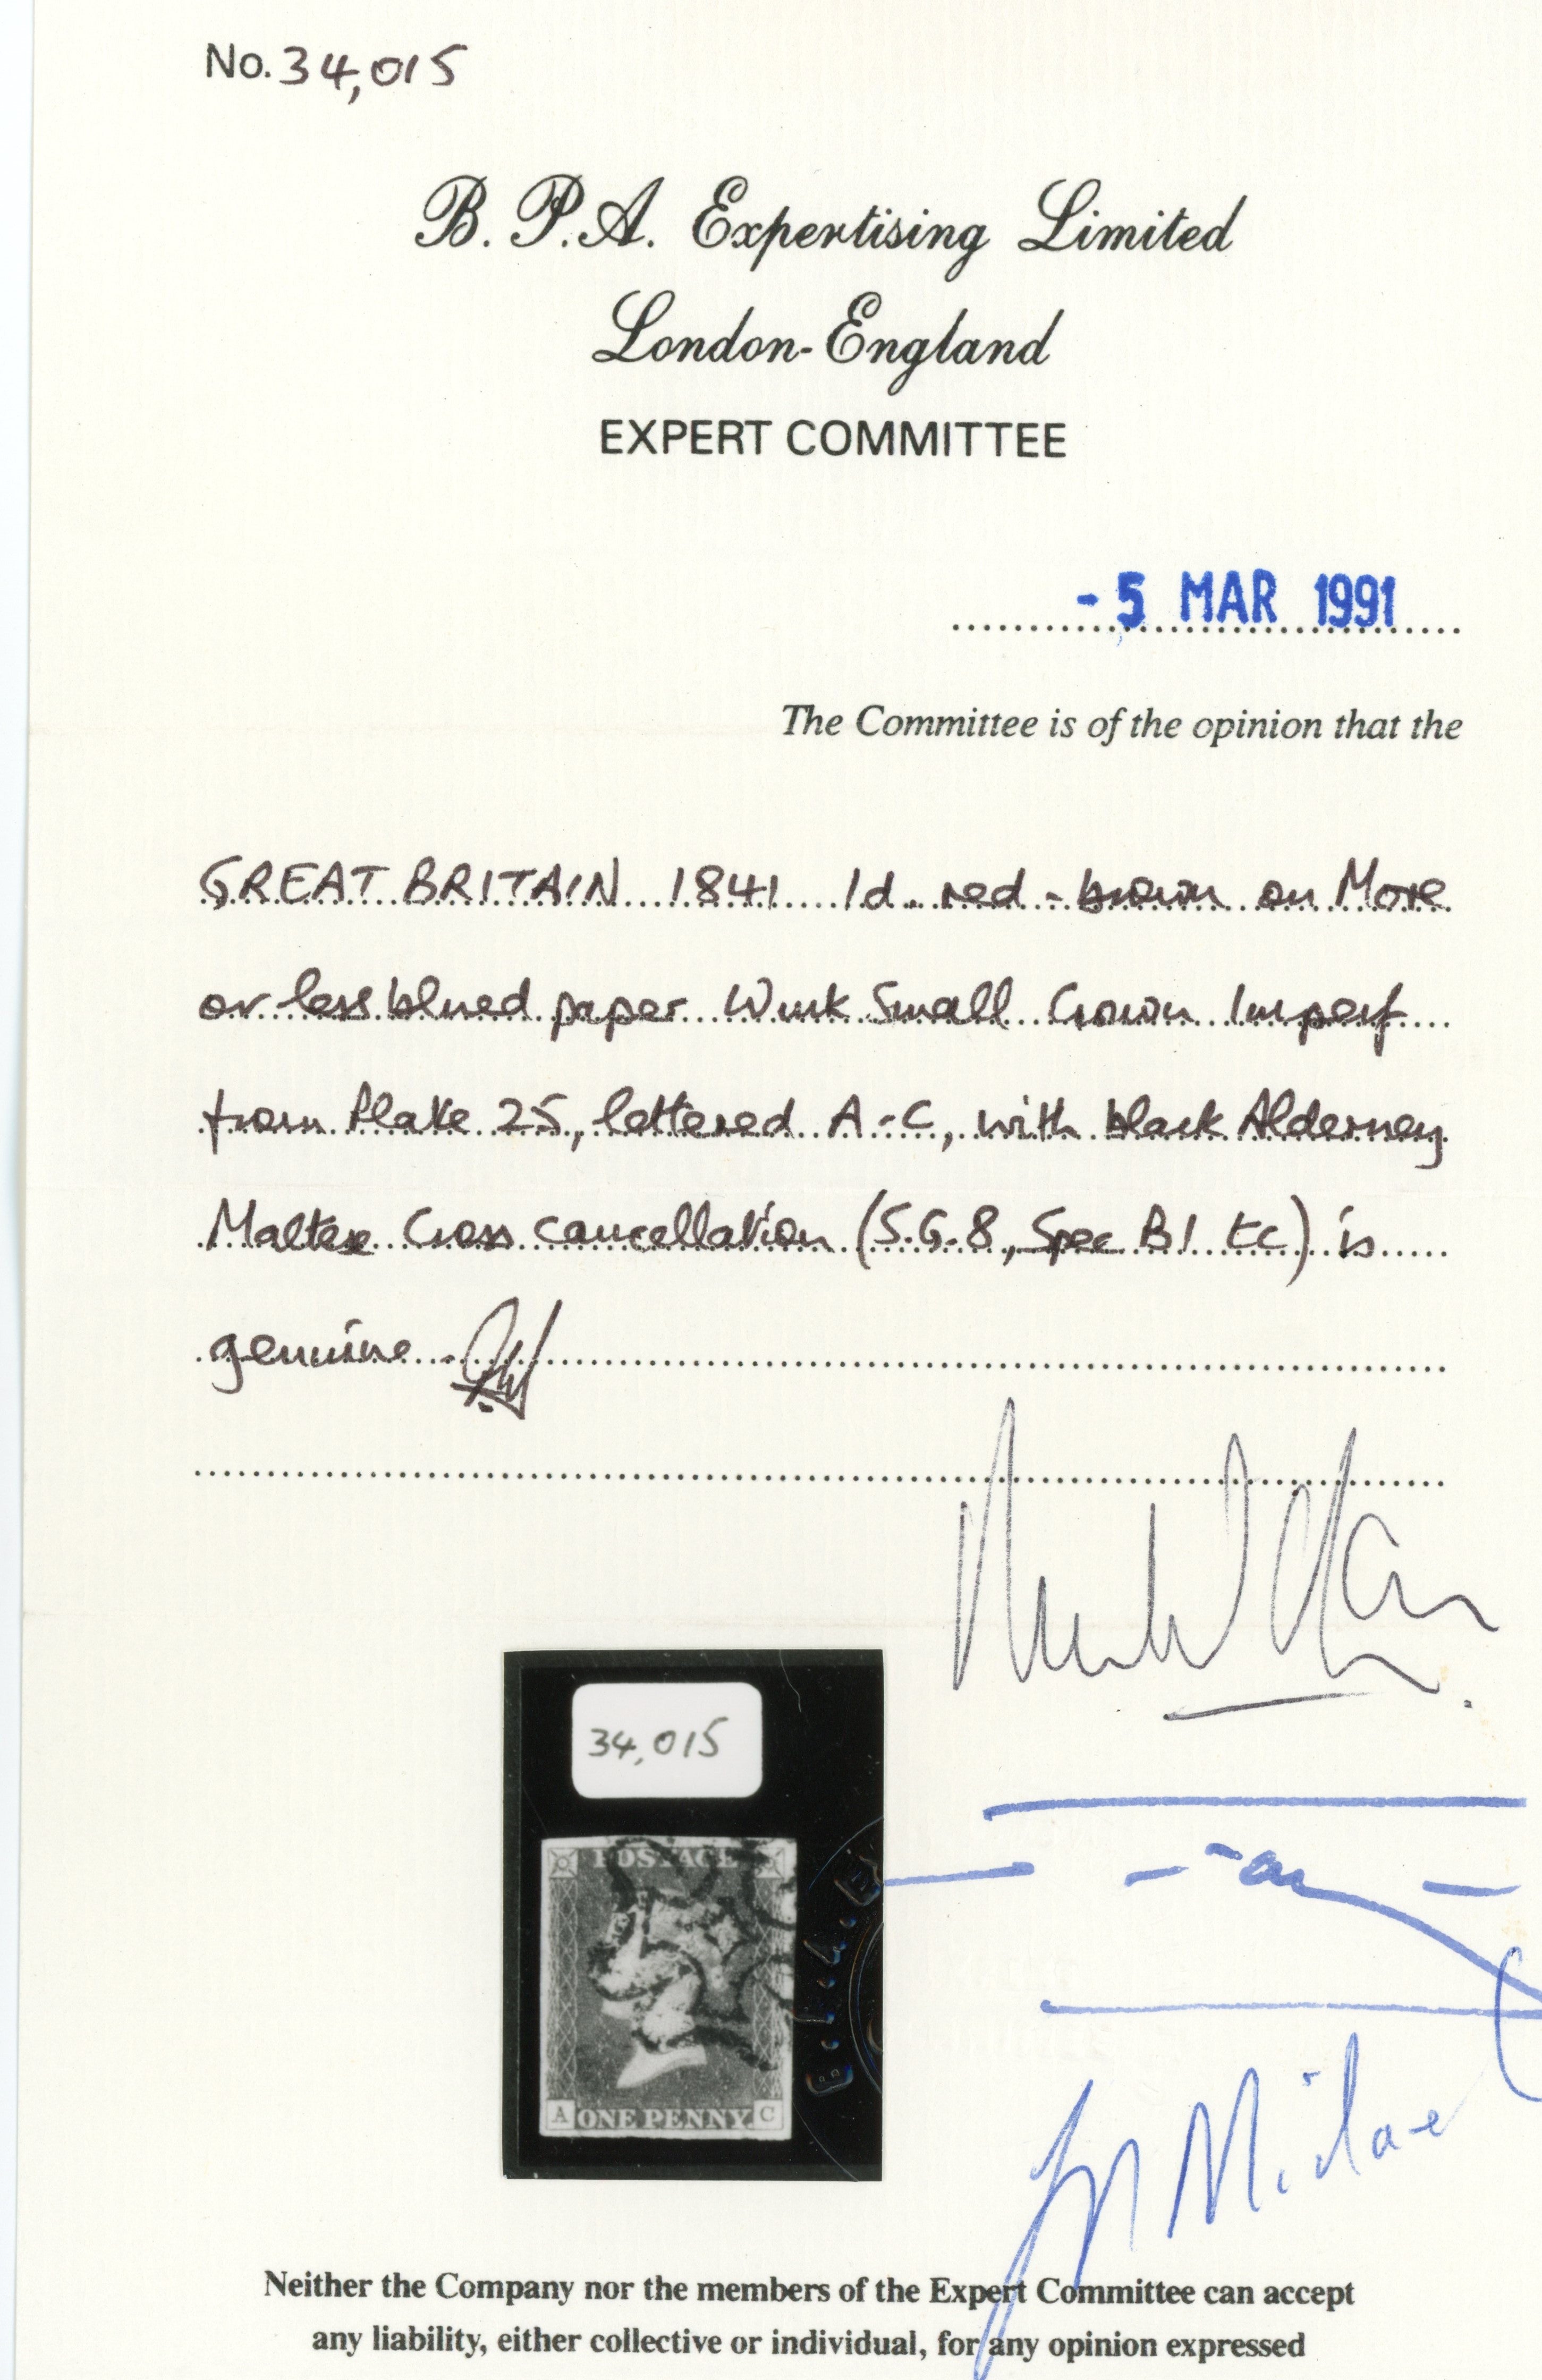 No. 34,015
B. P. A. Expertising Limited
London-England
EXPERT COMMITTEE
- 5 MAR 1991
The Committee is of the opinion that the
GREAT BRITAIN 1841 1d. red-brown on More
or less blued paper Wmk Small Crown Imperf
from Plate 25, lettered A-C, with black Alderney
Maltese Cross cancellation (S.G.8, Spec B1 tc) is
genuine.
34,015
POSTAGE
A ONE PENNY C
Neither the Company nor the members of the Expert Committee can accept
any liability, either collective or individual, for any opinion expressed